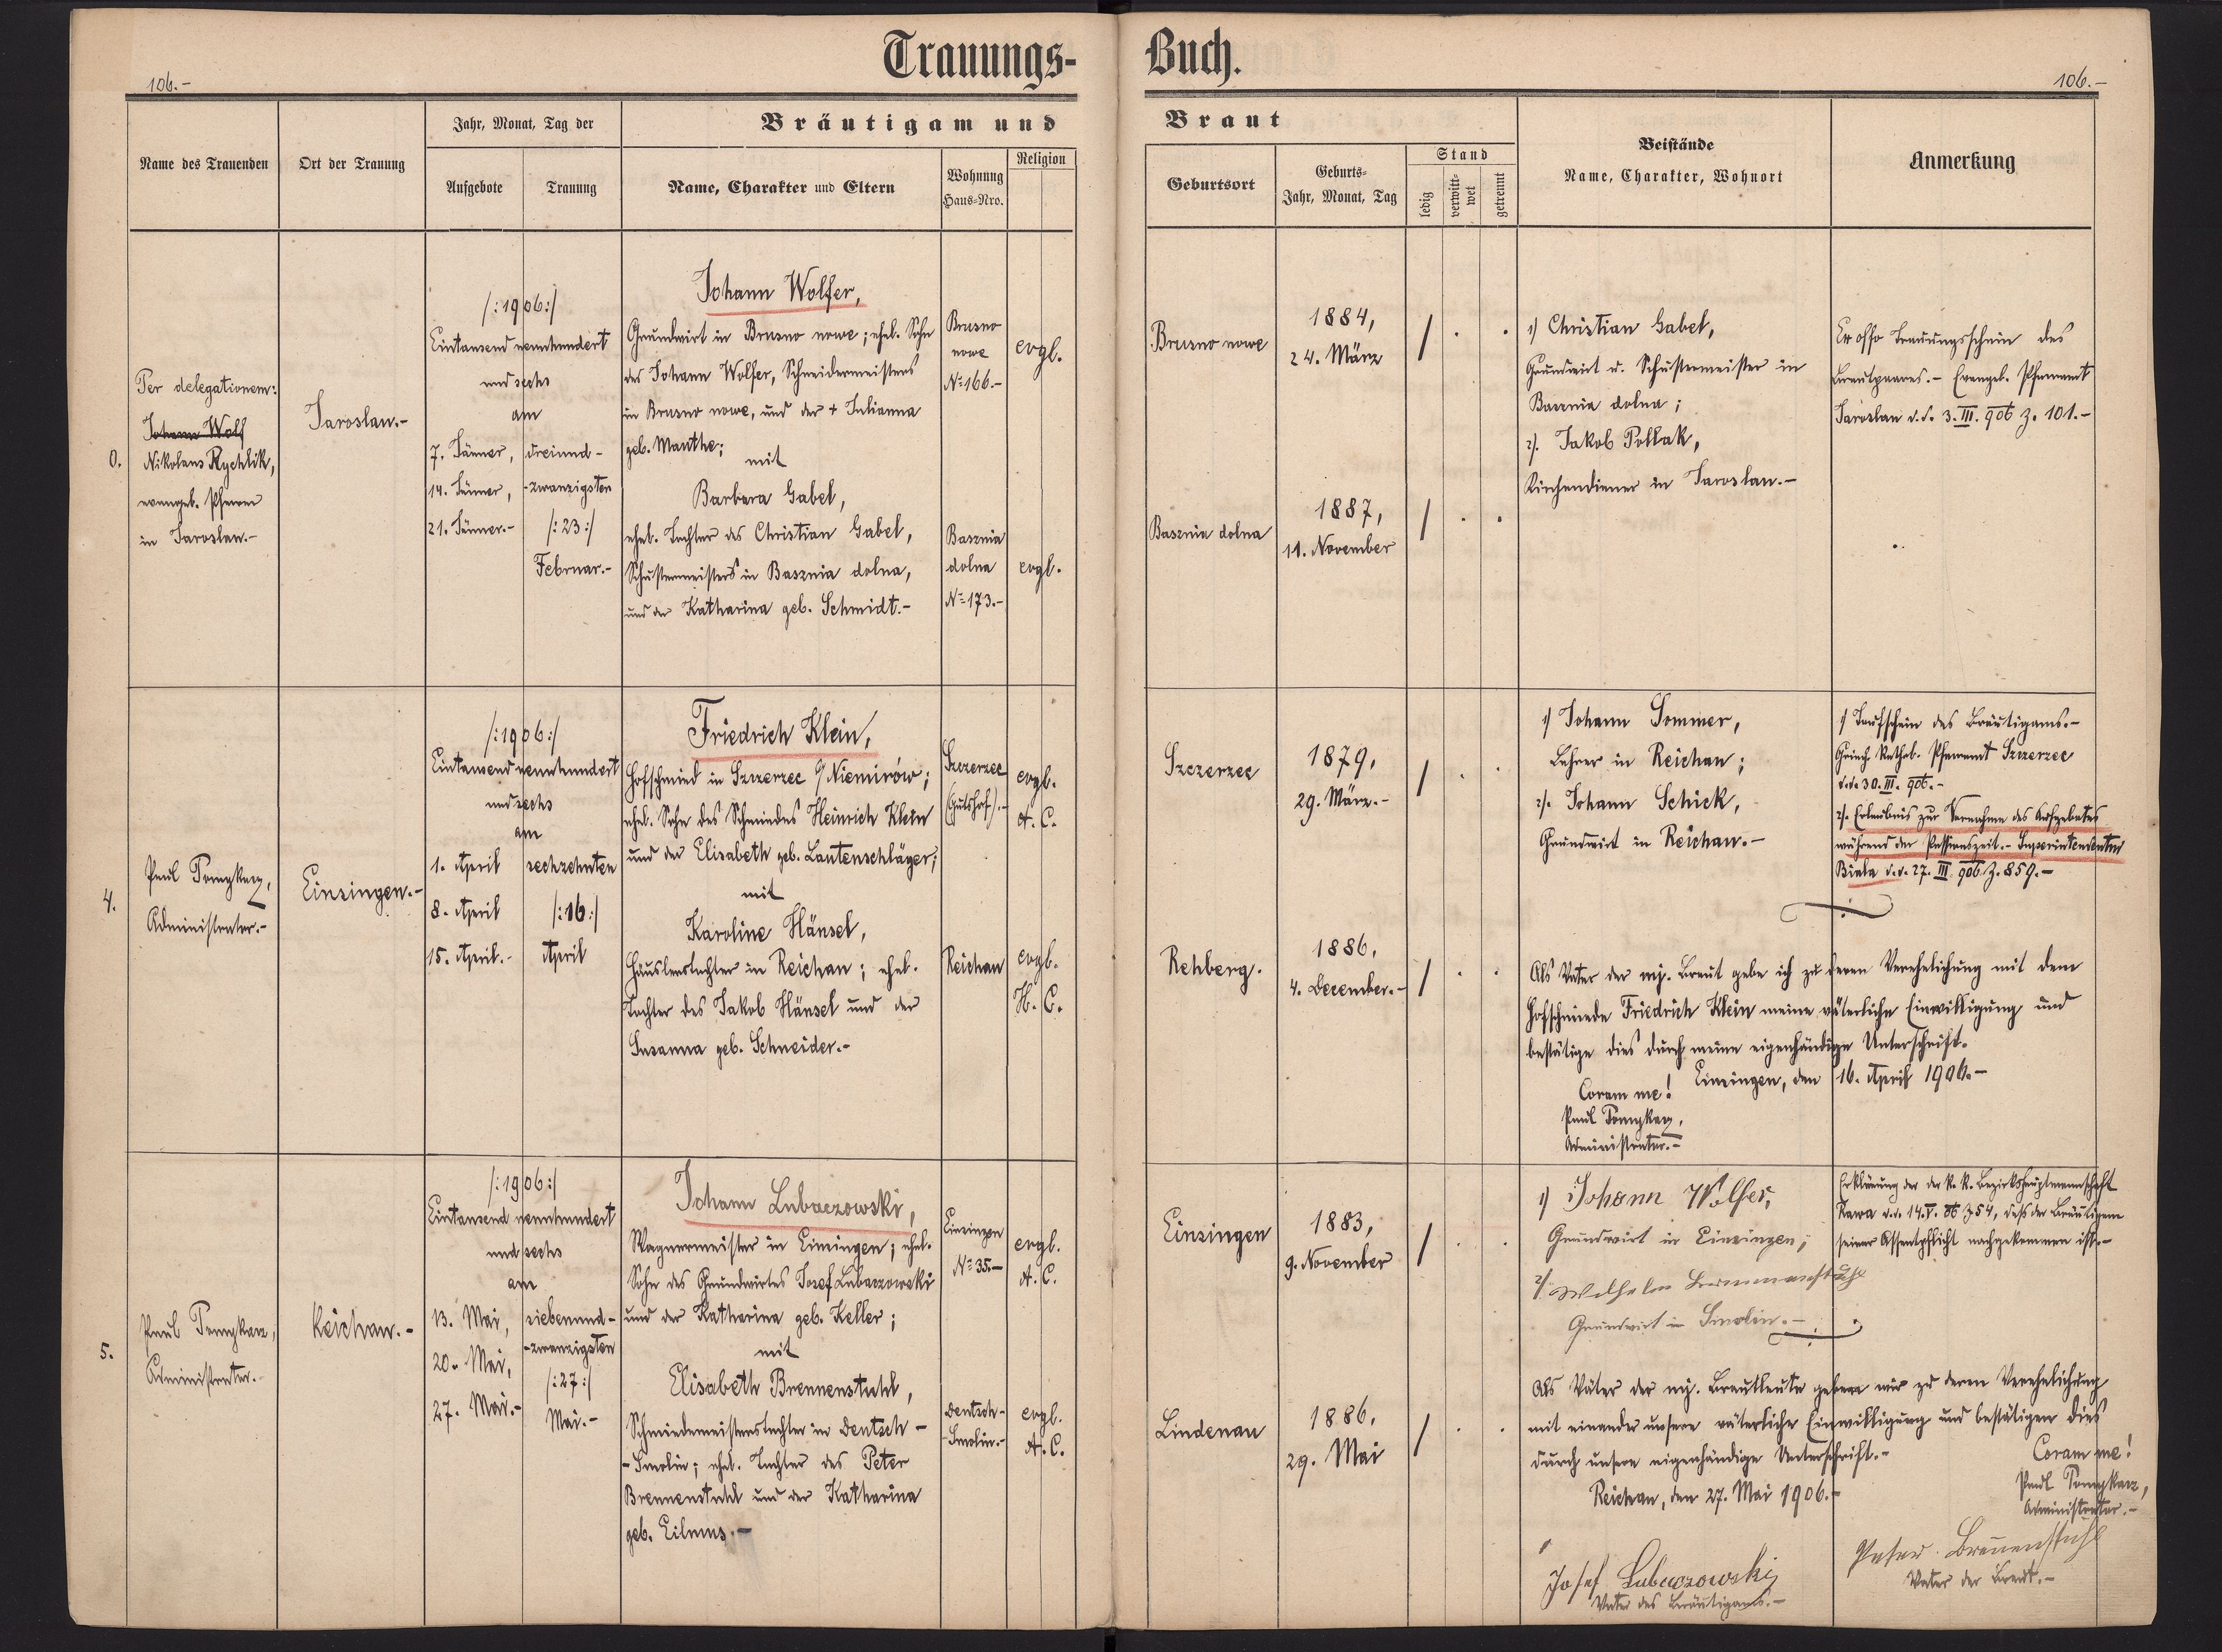 Trauungs-
Buch.
106.-
106.-
Name des Trauenden
Ort der Trauung
Jahr, Monat, Tag der
Aufgebote
Trauung
Bräutigam und
Name, Charakter und Eltern
Wohnung
Haus-Nro.
Religion
Braut
Geburtsort
Geburts-
Jahr, Monat, Tag
Stand
ledig
verwitt-
wet
getrennt
Beistände
Name, Charakter, Wohnort
Anmerkung
0.
Per delegationem:
Johann Wolf
Nikolaus Rychlik,
evangel. Pfarrer
in Jaroslau.-
Jaroslau.-
/:1906:/
Eintausend neunhundert
und sechs
am
7. Jänner,
14. Jänner,
21. Jänner.-
dreiund-
-zwanzigsten
/:23:/
Februar.-
Johann Wolfer,
Grundwirt in Brusno nowe; ehel. Sohn
des Johann Wolfer, Schneidermeisters
in Brusno nowe, und der + Julianna
geb. Manthe;
mit
Barbara Gabel,
ehel. Tochter des Christian Gabel,
Schustermeisters in Basznia dolna,
und der Katharina geb. Schmidt.-
Brusno
nowe
No 166.-
Basznia
dolna
No 173.-
evgl.
evgl.
Brusno nowe
Basznia dolna
1884,
24. März
1887,
11. November
1) Christian Gabel,
Grundwirt u. Schustermeister in
Basznia dolna;
2). Jakob Pollak,
Kirchendiener in Jaroslau.-
Ex offo Trauungsschein des
Brautpaares.- Evangel. Pfarramt
Jaroslau d.d. 3.III.906 Z. 101.-
4.
Paul Pomykacz,
Administrator.-
Einsingen.-
/:1906:/
Eintausend neunhundert
und sechs
am
1. April
8. April
15. April.-
sechzehnten
/:16:/
April
Friedrich Klein,
Hofschmied in Szczerzec b/ Niemirów;
ehel. Sohn des Schmiedes Heinrich Klein
und der Elisabeth geb. Lautenschläger;
mit
Karoline Hänsel,
Häuslerstochter in Reichau; ehel.
Tochter des Jakob Hänsel und der
Susanna geb. Schneider.-
Szczerzec
(Gutshof).-
Reichau
evgl.
A. C.
evgl.
H. C.
Szczerzec
Rehberg.
1879,
29. März.-
1886,
4. December.-
1) Johann Sommer,
Lehrer in Reichau;
2). Johann Schick,
Grundwirt in Reichau.-
1) Taufschein des Bräutigams.-
Griech. Kathol. Pfarramt Szczerzec
d.d. 30. III. 906.-
2). Erlaubnis zur Vornahme des Aufgebotes
während der Passionszeit.- Superintendentur
Biala d.d. 27. III. 906 Z. 859.-
Als Vater der mj. Braut gebe ich zu deren Verehelichung mit dem
Hofschmiede Friedrich Klein meine väterliche Einwilligung und
bestätige dies durch meine eigenhändige Unterschrift.
Einsingen, den 16. April 1906.-
Coram me!
Paul Pomykacz,
Administrator.-
5.
Paul Pomykacz,
Administrator.
Reichau.-
/:1906:/
Eintausend neunhundert
und sechs
am
13. Mai,
20. Mai,
27. Mai.-
siebenund-
-zwanzigsten
/:27:/
Mai.-
Johann Lubaczowski,
Wagnermeister in Einsingen; ehel.
Sohn des Grundwirtes Josef Lubaczowski
und der Katharina geb. Keller;
mit
Elisabeth Brennenstuhl,
Schmiedemeisterstochter in Deutsch-
-Smolin; ehel. Tochter des Peter
Brennenstuhl und der Katharina
geb. Eilmus.-
Einsingen
No 35.-
Deutsch-
-Smolin.-
evgl.
A. C.
evgl.
A. C.
Einsingen
Lindenau
1883,
9. November
1886,
29. Mai
1) Johann Wolfer,
Grundwirt in Einsingen;
2). Wilhelm Brennenstuhl
Grundwirt in Smolin.-
Erklärung der k. k. Bezirkshauptmannschaft
Rawa d.d. 14.V. 06 Z 54, daß der Bräutigam
seiner Assentpflicht nachgekommen ist.-
Als Väter der mj. Brautleute geben wir zu deren Verehelichung
mit einander unsere väterliche Einwilligung und bestätigen dies
durch unsere eigenhändige Unterschrift.-
Reichau, den 27. Mai 1906.-
Coram me!
Paul Pomykacz,
Administrator.-
Josef Lubaczowski
Vater des Bräutigams.-
Peter Brennenstuhl
Vater der Braut.-